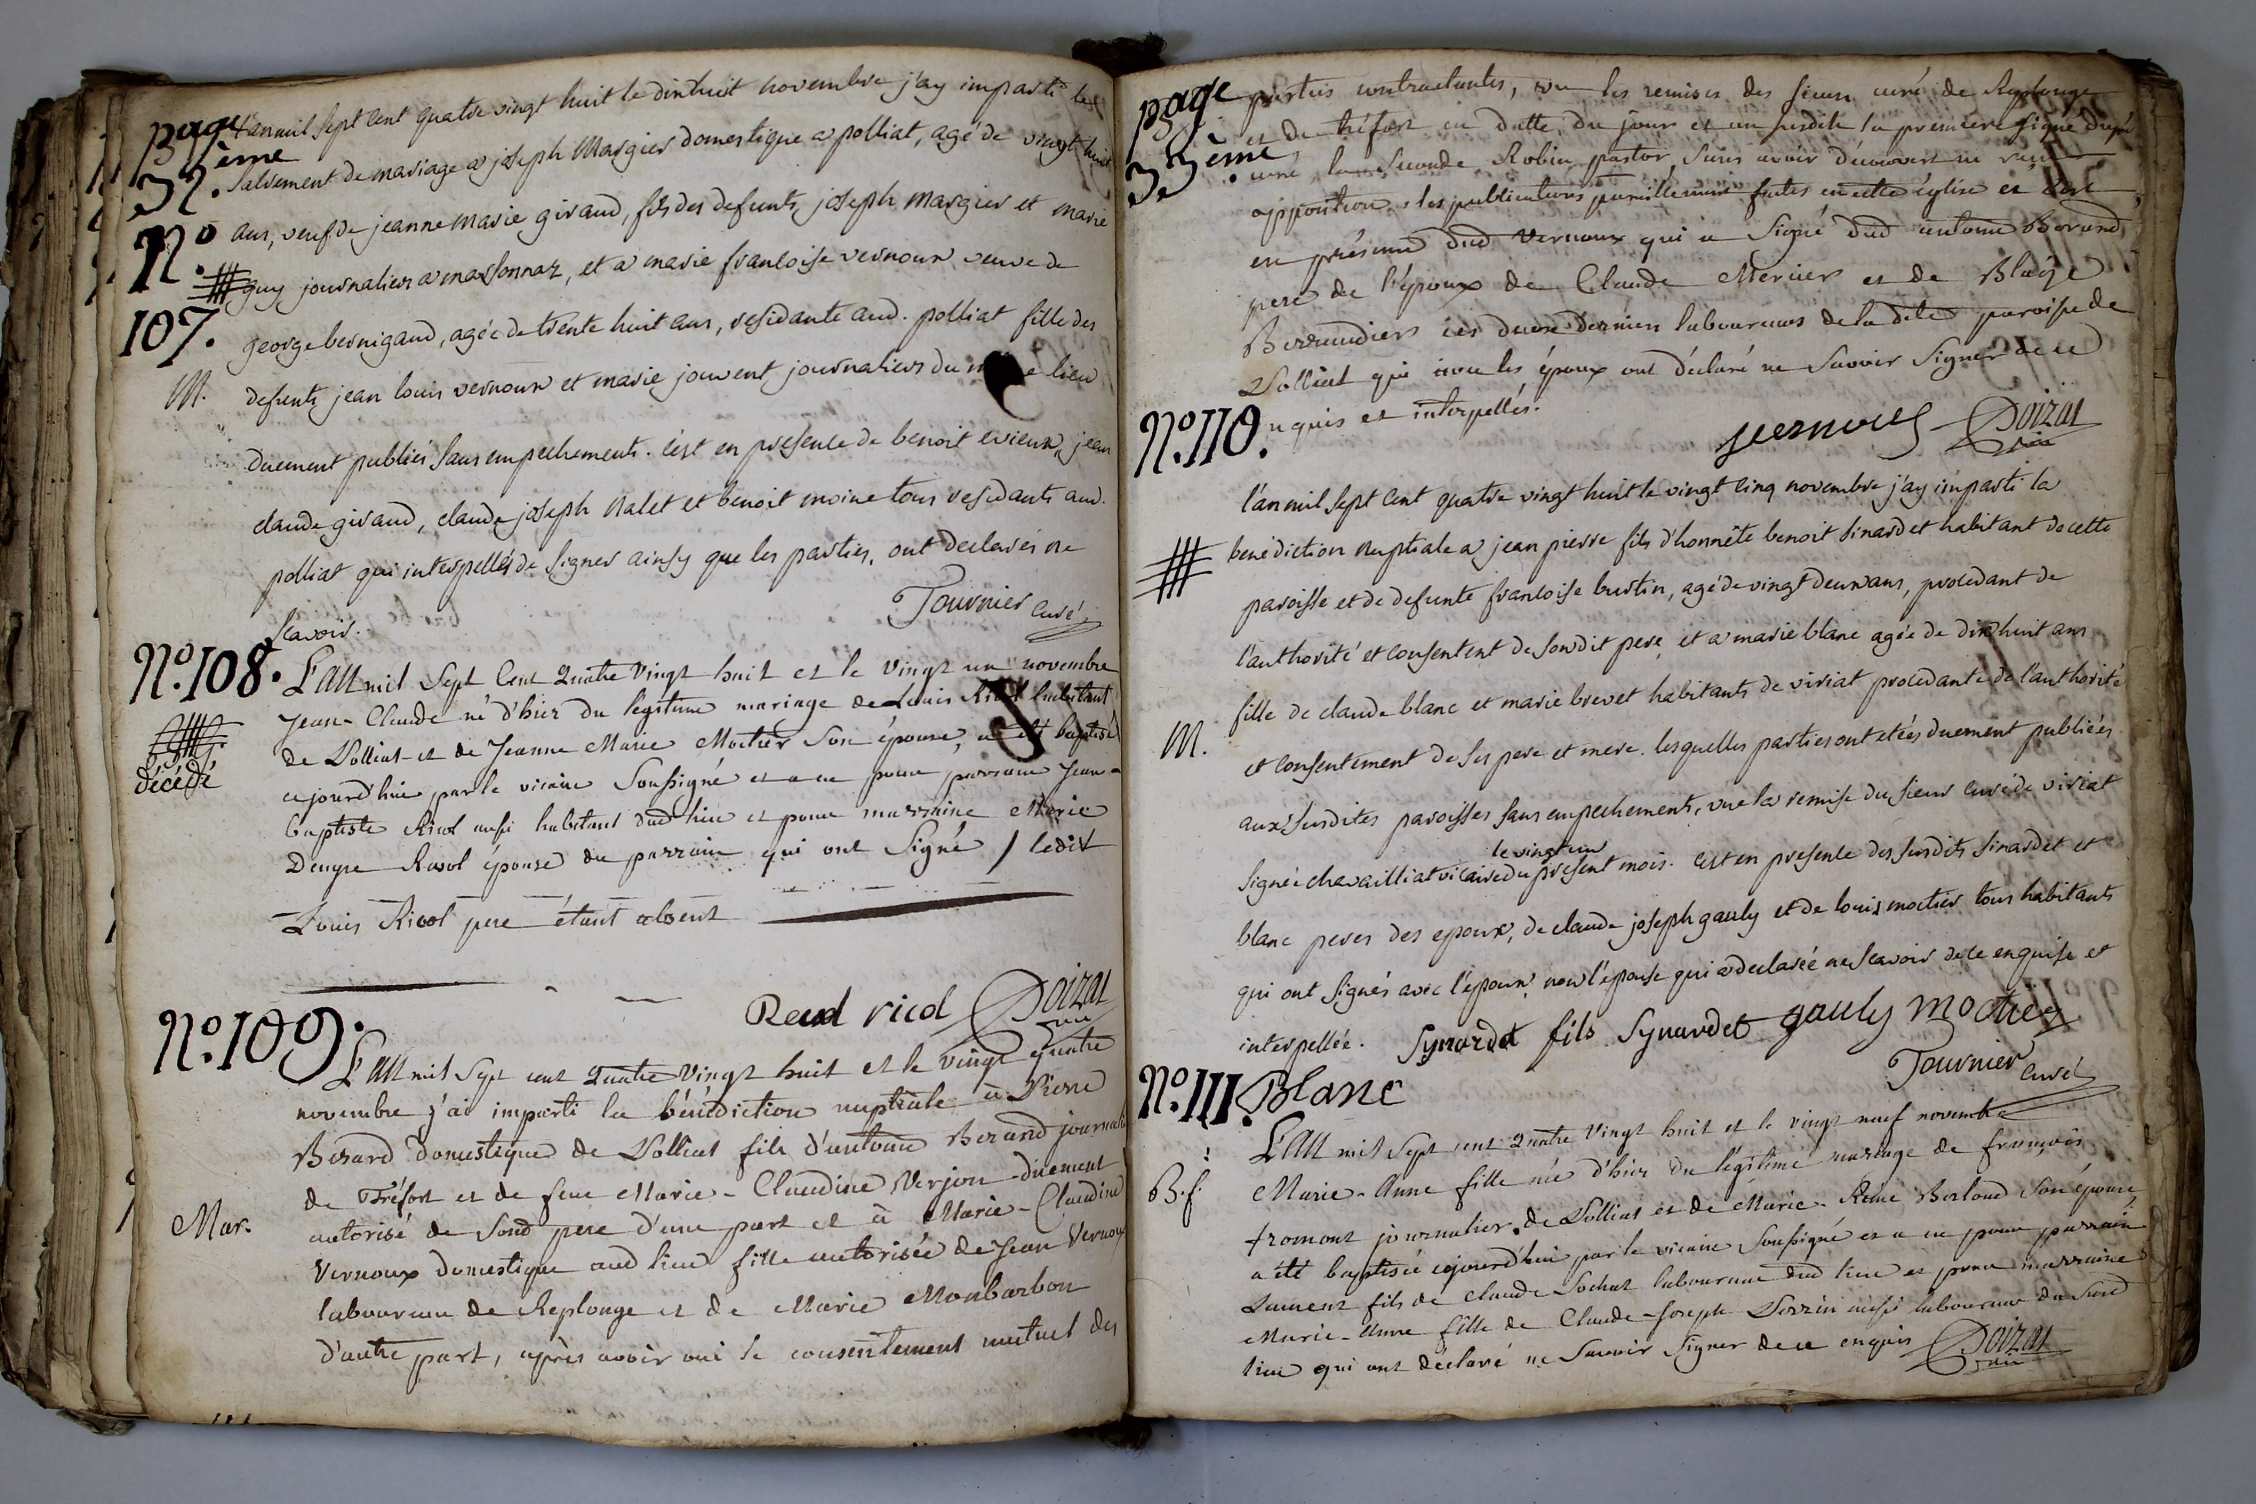 page 32.ème
L'an mil sept cent quatre vingt huit le dixhuit novembre j'ay imparti le
Sacrement de mariage a joseph Margier domestique a polliat, agé de vingt huit
N.º 107.
ans, veuf de jeanne marie giraud, fils des defunts joseph margier et marie
guy journaliers a marsonnaz, et a marie francoise vernoux veuve de
george bernigaud, agée de trente huit ans, residante aud. polliat fille des
M.
defunts jean louis vernoux et marie jouvent journaliers du lieu
duement publiés sans empechements. c'est en presence de benoit evieux, jean
claude giraud, claude joseph Ralet et benoit moine tous residants aud.
polliat qui interpellés de signer ainsy que les parties, ont declarés ne
scavoir. Tournier curé
Nº.108.
L'an mil sept Cent Quatre Vingt huit et le Vingt un novembre
Jean-Claude né d'hier du légitime mariage de Louis Ricol habitant
de Polliat et de Jeanne Marie Moctier son épouse, a été baptisé
décédé
cejourd'hui par le vicaire Soussigné et a eu pour parrain Jean-
baptiste Ricol aussi habitant dud lieu et pour marraine Marie
Denyse Ravol épouse du parrain qui ont Signé / ledit
Louis Ricol pere étant absent
Ricol Poizat vic
Nº.109.
L'an mil Sept cent Quatre Vingt huit et le vingt quatre
novembre j'ai imparti la bénédiction nuptiale à Pierre
Berard domestique de Polliat fils d'antoine Berard journali
de Tréfort et de feue Marie-Claudine Verjon duement
Mar.
autorisé de Sond pere d'une part et à Marie-Claudine
Vernoux domestique aud lieu fille autorisée de Jean Vernoux
laboureur de Replonge et de Marie Monbarbon
d'autre part, après avoir oui le consentement mutuel des
page 33ème.
parties contractantes, vu les remises des sieurs curé de Replonge
et de Tréfort en datte du jour et an susdits la premiere signé Dupré
curé la seconde Robin pastor, sans avoir découvert ni reçu
opposition, les publications pareillement faites en cette église et c'est
en présence dud Vernoux qui a Signé dud antoine Berard
pere de l'époux de Claude Mercier et de Blaise
Berraudier ces deux derniers laboureurs de la dite paroisse de
Polliat qui avec les époux ont déclaré ne Savoir Signer de ce
enquis et interpellés.
vernoux Poizat vic
Nº.110.
l'an mil sept cent quatre vingt huit le vingt cinq novembre j'ay imparti la
benédiction nuptiale a jean pierre fils d'honnête benoit sinardet habitant de cette
paroisse et de defunte francoise burtin, agé de vingt deux ans, procedant de
l'authorité et consentent de sondit pere, et a marie blanc agée de dixhuit ans
fille de claude blanc et marie brevet habitants de viriat procedante de l'authorité
M.
et consentement de ses pere et mere. lesquelles parties ont etées duement publiées
aux susdites paroisses sans empechements, vue la remise du sieur curé de viriat
le vingt un
signée chavailliat vicaire du présent mois. c'est en presence des susdits sinardet et
blanc peres des epoux, de claude joseph gauly et de louis moctier tous habitants
qui ont signés avec l'époux, non l'epouse qui a declarée ne scavoir de ce enquise et
interpellée. Synardet fils Synardet gauly moctier
Blanc Tournier curé
Nº.111.
L'an mil Sept cent Quatre Vingt huit et le vingt neuf novembre
B.f.
Marie-Anne fille née d'hier du légitime mariage de françois
fromont journalier de Polliat et de Marie-Reine Berloud Son épouse
a été baptisée cejourd'hui par le vicaire Soussigné et a eu pour parrain
Laurent fils de claude Sochat laboureur dud lieu et pour marraine
Marie-Anne fille de Claude-Joseph Perrin aussi laboureur du Susd
lieu qui ont déclaré ne Savoir Signer de ce enquis Poizat vic